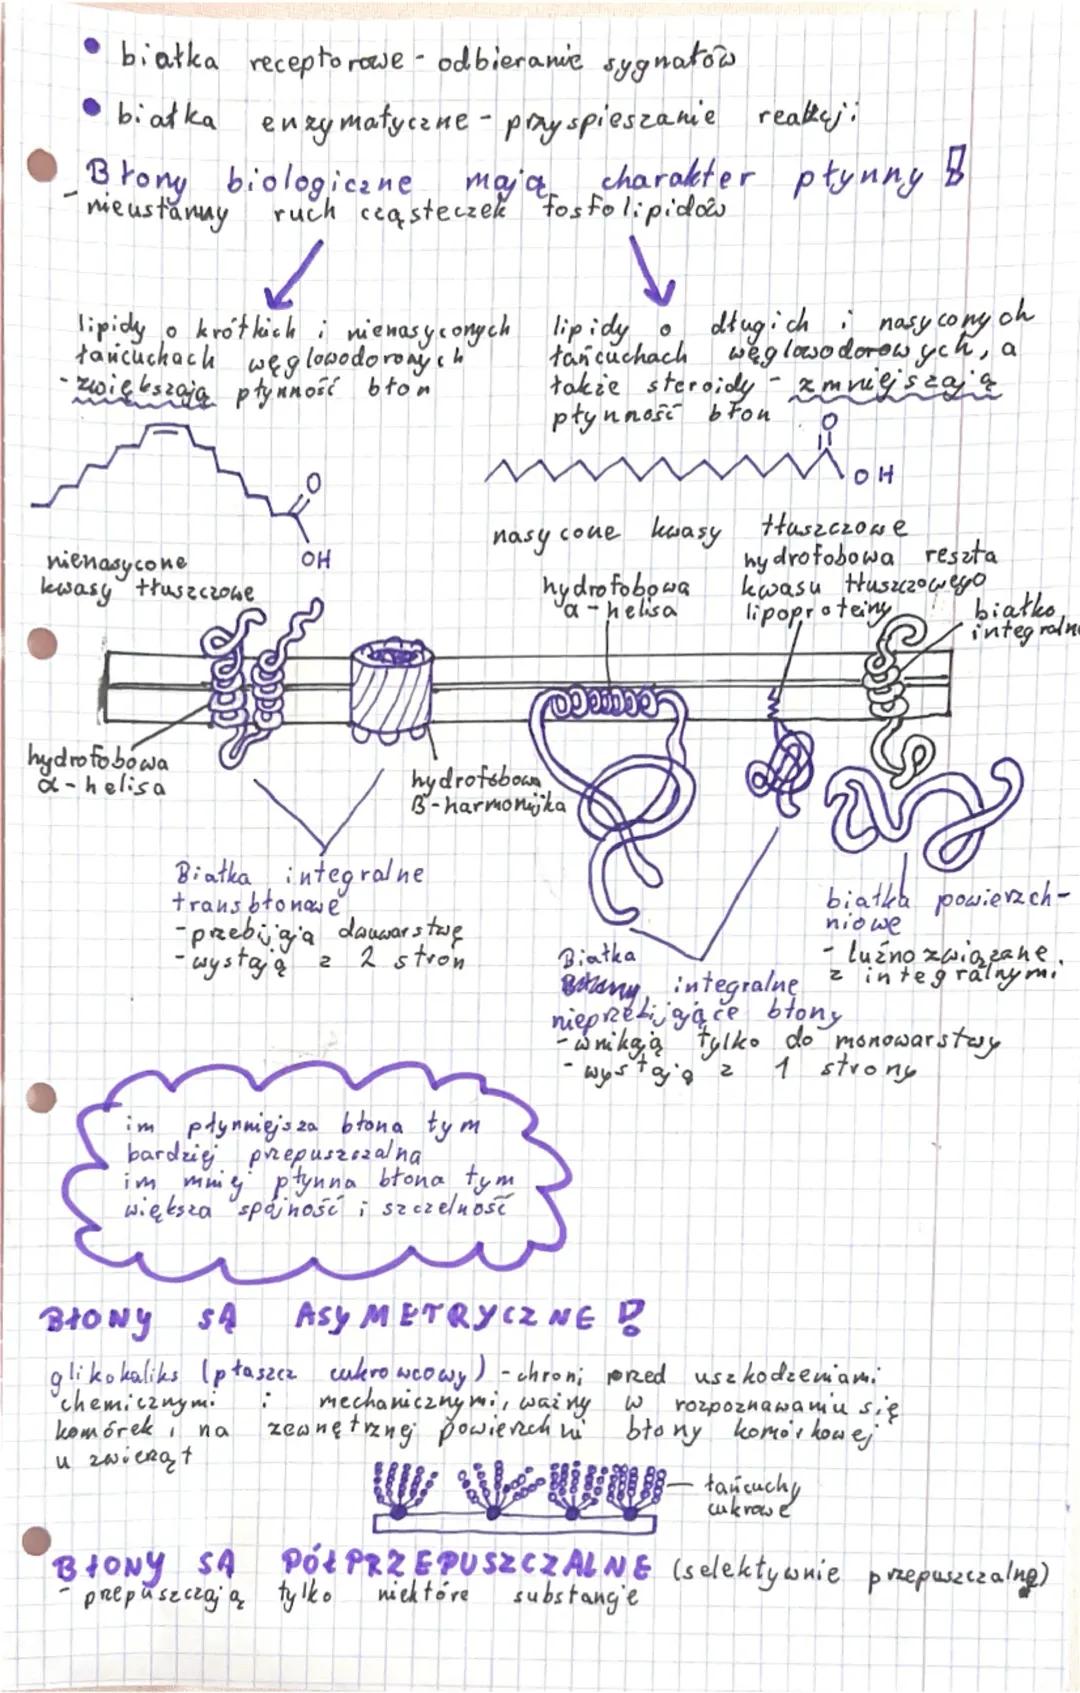 białka receptorowe - odbieranie sygnałów
białka enzymatyczne - przyspieszanie reakcji
Błony biologiczne mają charakter płynny!
- nieustanny ruch cząsteczek fosfolipidów
lipidy o krótkich i nienasyconych
łańcuchach węglowodorowych
- zwiększają płynność błon
lipidy o długich i nasyconych
łańcuchach węglowodorowych, a
także steroidy - zmniejszają
płynność błon
O
OH
nienasycone
kwasy tłuszczowe
O
OH
nasycone kwasy tłuszczowe
hydrofobowa
α-helisa
hydrofobowa reszta
kwasu tłuszczowego
lipoproteiny
białko
integralne
hydrofobowa
α-helisa
hydrofobowa
β-harmonijka
Białka integralne
transbłonowe
- przebijają dwuwarstwę
- wystają z 2 stron
Białka
integralne
nieprzebijające błony
- wnikają tylko do monowarstwy
- wystają z 1 strony
białka powierzch-
niowe
- luźno związane
z integralnymi
im płynniejsza błona tym
bardziej przepuszczalna
im mniej płynna błona tym
większa spójność i szczelność
BŁONY SĄ ASYMETRYCZNE!
glikokaliks (płaszcz cukrowcowy) - chroni przed uszkodzeniami
chemicznymi i mechanicznymi, ważny w rozpoznawaniu się
komórek, na zewnętrznej powierzchni błony komórkowej
u zwierząt
łańcuchy
cukrowe
BŁONY SĄ PÓŁPRZEPUSZCZALNE (selektywnie przepuszczalne)
- przepuszczają tylko niektóre substancje